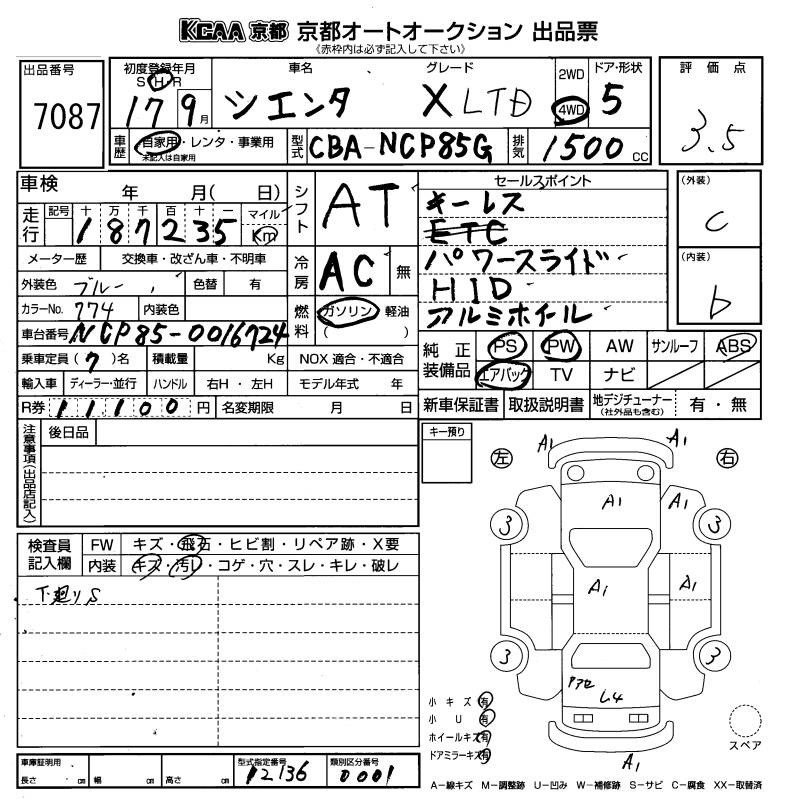 KCAA 京都 京都オートオークション 出品票
《赤枠内は必ず記入して下さい》
出品番号
7087
初度登録年月
S H R
17 9月
車名
シエンタ
グレード
X LTD
2WD
4WD
ドア・形状
5
評価点
3.5
車歴
自家用・レンタ・事業用
未記入は自家用
型式
CBA-NCP85G
排気
1500 cc
車検 年 月( 日)
走行
記号 十 万 千 百 十 一 マイル
187235 Km
シフト
AT
メーター歴 交換車・改ざん車・不明車
外装色 ブルー 色替 有
冷房
AC 無
カラーNo. 774 内装色
燃料
ガソリン 軽油
( )
車台番号 NCP85-0016724
乗車定員 (7)名 積載量 Kg NOX 適合・不適合
輸入車 ディーラー・並行 ハンドル 右H・左H モデル年式 年
R券 11100 円 名変期限 月 日
セールスポイント
キーレス
ETC
パワースライド
HID
アルミホイール
(外装)
C
(内装)
b
純正装備品
PS PW AW サンルーフ ABS
エアバック TV ナビ
新車保証書 取扱説明書 地デジチューナー
(社外品も含む) 有・無
注意事項(出品店記入)
後日品
キー預り
検査員記入欄
FW キズ・飛石・ヒビ割・リペア跡・X要
内装 キズ・汚レ・コゲ・穴・スレ・キレ・破レ
下廻りS
左 右
A1 A1
A1 A1
3 3
A1 A1
3 3
L4
A1
小キズ 有
小U 有
ホイールキズ 有
ドアミラーキズ 有
スペア
車庫証明用
長さ cm 幅 cm 高さ cm
型式指定番号
12136
類別区分番号
0001
A−線キズ M−調整跡 U−凹み W−補修跡 S−サビ C−腐食 XX−取替済